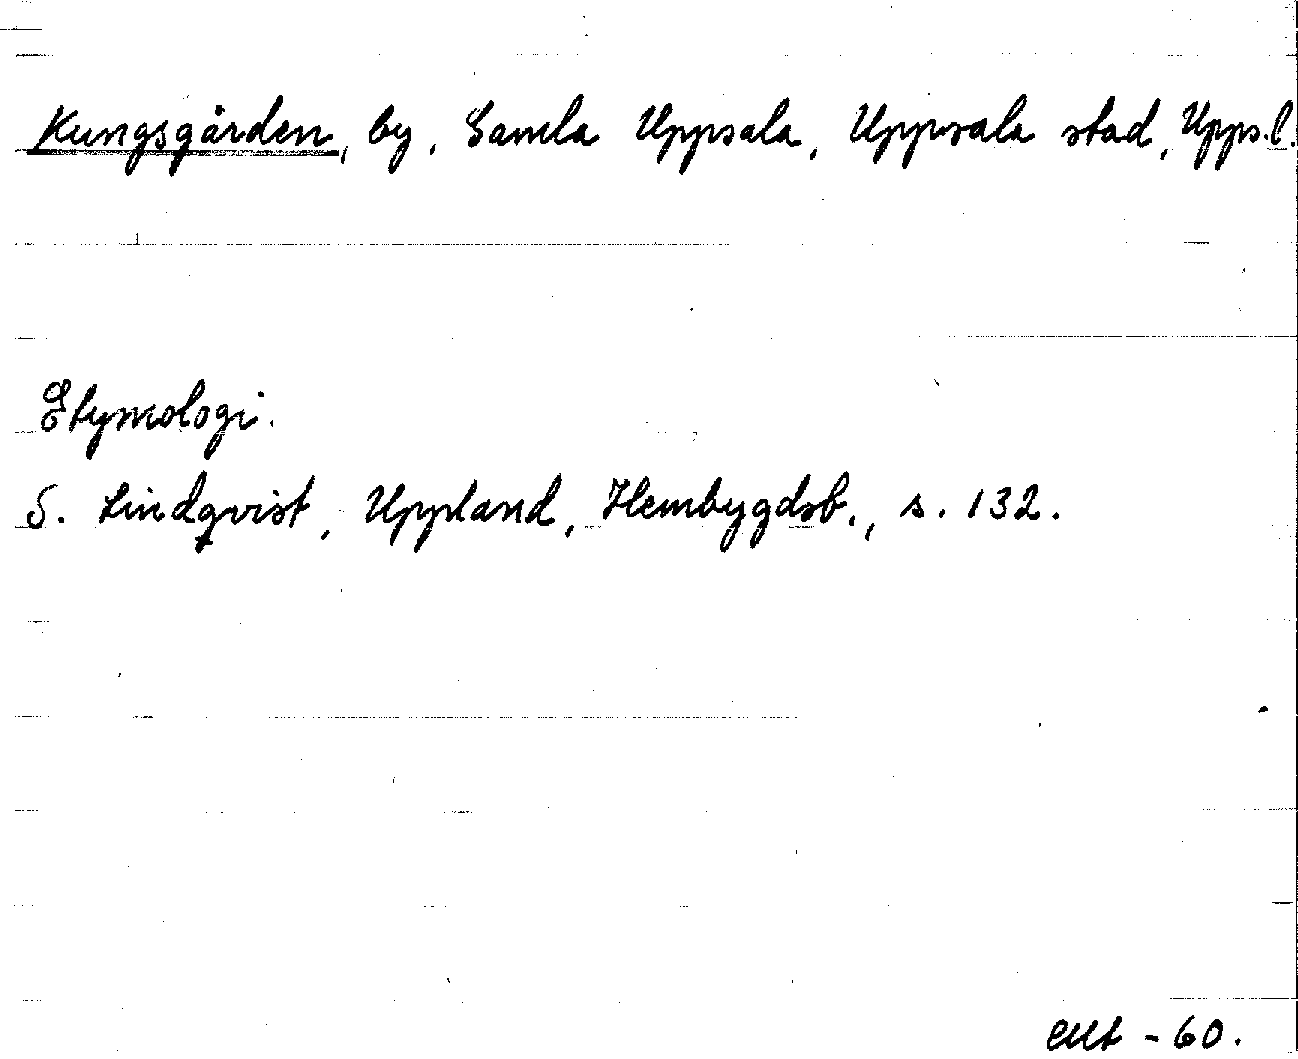 Kungsgården, by, Gamla Uppsala, Uppsala stad, Upps.l.
Etymologi.
S. Lindqvist, Uppland, Hembygdsb., s. 132.
-60.